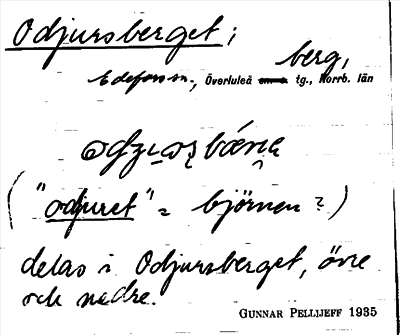 Odjursberget;
berg,
Edeforssn., Överluleå tg., Norrb. län
("odjuret" = björnen?)
delas i Odjursberget, övre
och nedre.
GUNNAR PELLIJEFF 1935